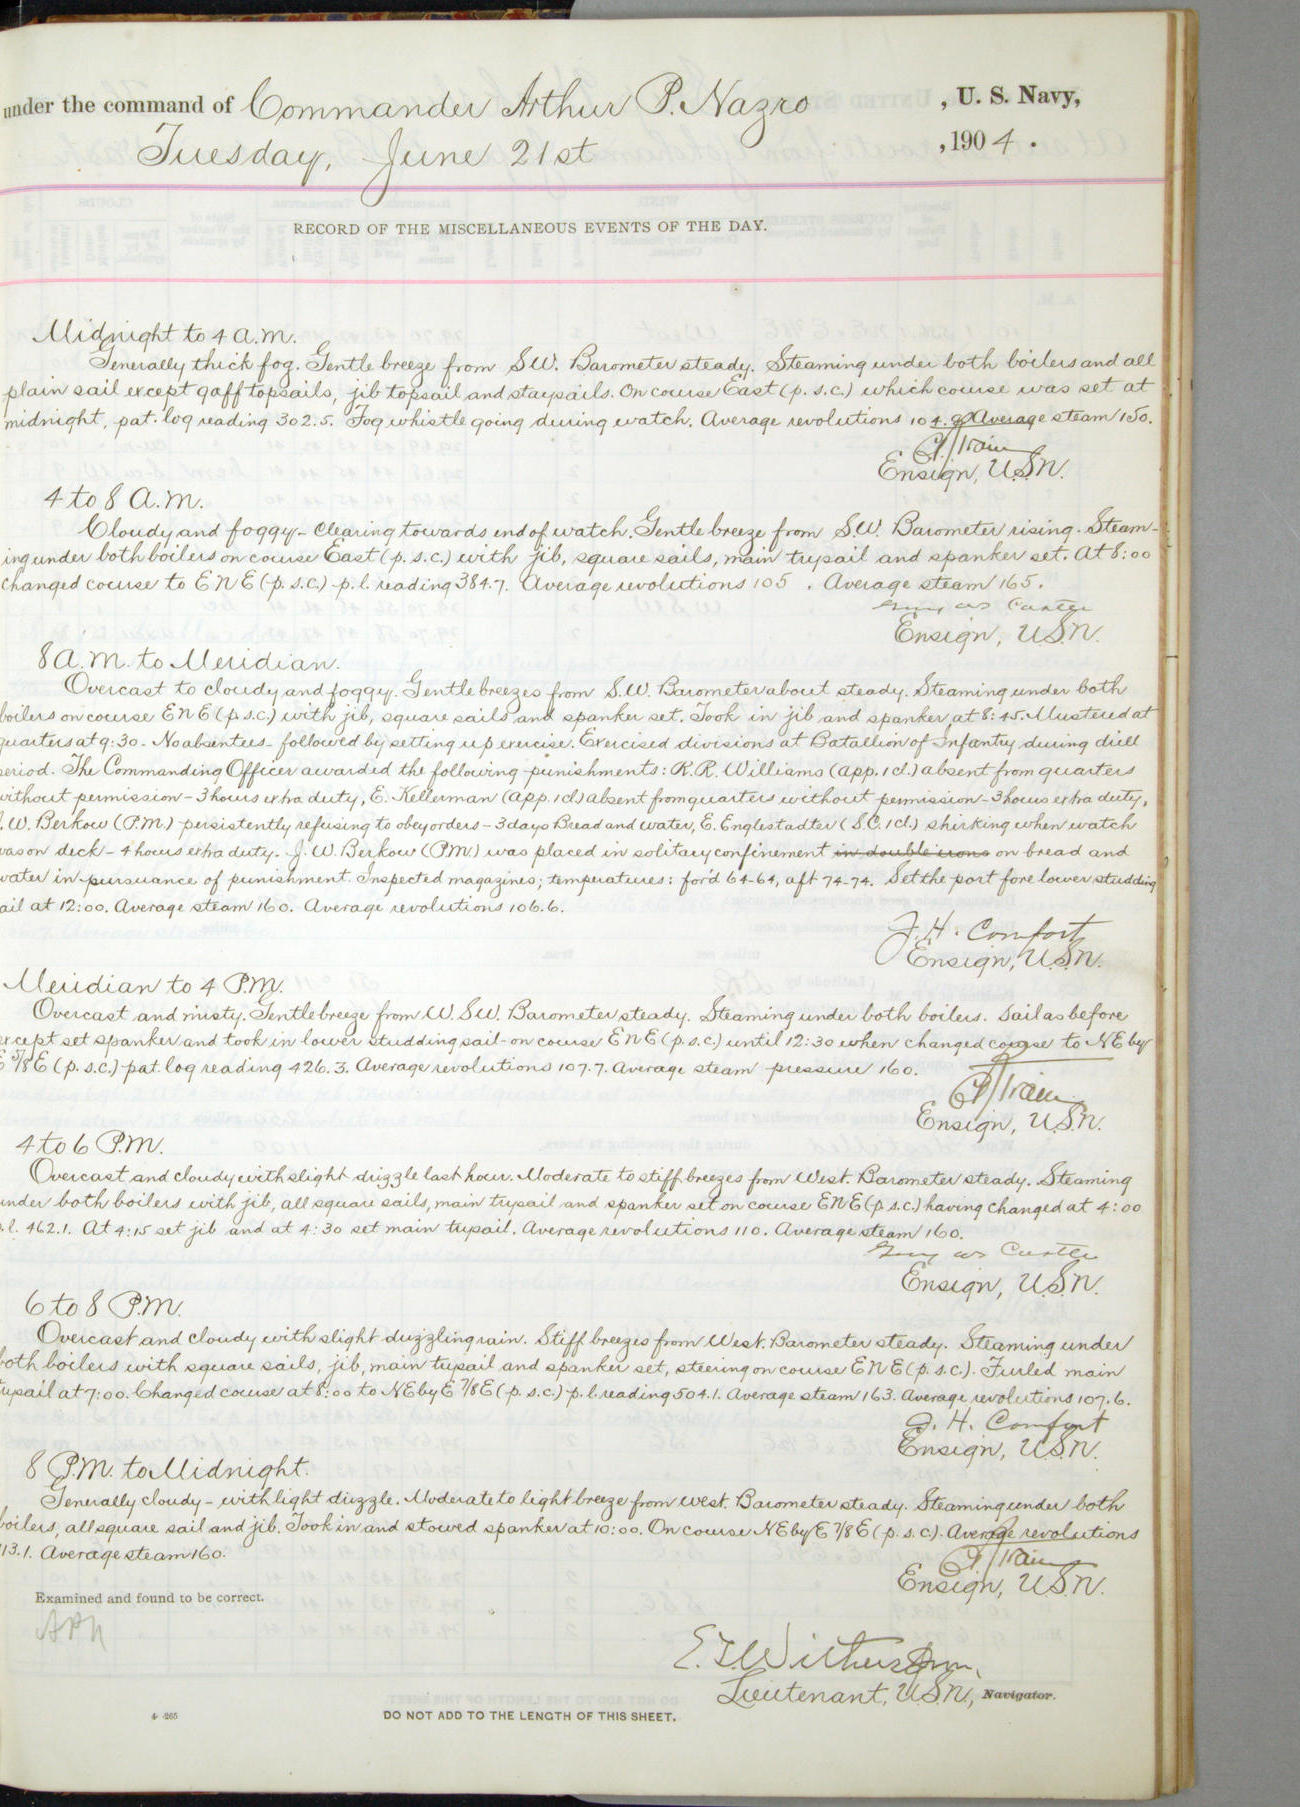 under the command of Commander Arthur P. Nazro , U. S. Navy,
Tuesday, June 21st , 1904 .
RECORD OF THE MISCELLANEOUS EVENTS OF THE DAY.
Midnight to 4 A.M.
Generally thick fog. Gentle breeze from S.W. Barometer steady. Steaming under both boilers and all
plain sail except gaff topsails, jib topsail and staysails. On course East (p.s.c.) which course was set at
midnight, pat. log reading 302.5. Fog whistle going during watch. Average revolutions 104.9 Average steam 150.
Train
Ensign, U.S.N.
4 to 8 A.M.
Cloudy and foggy - clearing towards end of watch. Gentle breeze from S.W. Barometer rising. Steam-
ing under both boilers on course East (p.s.c.) with jib, square sails, main trysail and spanker set. At 8:00
changed course to ENE (p.s.c.) - p.l. reading 384.7. Average revolutions 105 . Average steam 165.
Guy W. Castle
Ensign, U.S.N.
8 A.M. to Meridian.
Overcast to cloudy and foggy. Gentle breezes from S.W. Barometer about steady. Steaming under both
boilers on course ENE (p.s.c.) with jib, square sails and spanker set. Took in jib and spanker at 8:45. Mustered at
quarters at 9:30 - No absentees - followed by setting up exercise. Exercised divisions at Batallion of Infantry during drill
period. The Commanding Officer awarded the following punishments: R.R. Williams (app. 1 cl.) absent from quarters
without permission - 3 hours extra duty, E. Kellerman (app. 1 cl) absent from quarters without permission - 3 hours extra duty,
J.W. Berkow (P.M.) persistently refusing to obey orders - 3 days Bread and water, E. Englestadter (S.C. 1 cl.) shirking when watch
was on deck - 4 hours extra duty. J.W. Berkow (P.M.) was placed in solitary confinement in double irons on bread and
water in pursuance of punishment. Inspected magazines; temperatures: for'd 64-64, aft 74-74. Set the port fore lower studding
sail at 12:00. Average steam 160. Average revolutions 106.6.
J.H. Comfort
Ensign, U.S.N.
Meridian to 4 P.M.
Overcast and misty. Gentle breeze from W.S.W. Barometer steady. Steaming under both boilers. Sail as before
except set spanker and took in lower studding sail - on course ENE (p.s.c.) until 12:30 when changed course to NE by
E 5/8 E (p.s.c.) - pat. log reading 426.3. Average revolutions 107.7. Average steam pressure 160.
Train
Ensign, U.S.N.
4 to 6 P.M.
Overcast and cloudy with slight drizzle last hour. Moderate to stiff breezes from West. Barometer steady. Steaming
under both boilers with jib, all square sails, main trysail and spanker set on course ENE (p.s.c.) having changed at 4:00
p.l. 462.1. At 4:15 set jib and at 4:30 set main trysail. Average revolutions 110. Average steam 160.
Guy W. Castle
Ensign, U.S.N.
6 to 8 P.M.
Overcast and cloudy with slight drizzling rain. Stiff breezes from West. Barometer steady. Steaming under
both boilers with square sails, jib, main trysail and spanker set, steering on course ENE (p.s.c.). Furled main
trysail at 7:00. Changed course at 8:00 to NE by E 7/8 E (p.s.c.) p.l. reading 504.1. Average steam 163. Average revolutions 107.6.
J.H. Comfort
Ensign, U.S.N.
8 P.M. to Midnight.
Generally cloudy - with light drizzle. Moderate to light breeze from west. Barometer steady. Steaming under both
boilers, all square sail and jib. Took in and stowed spanker at 10:00. On course NE by E 7/8 E (p.s.c.). Average revolutions
113.1. Average steam 160.
Train
Ensign, U.S.N.
Examined and found to be correct.
APN
E.T. Witherspoon,
Lieutenant, U.S.N., Navigator.
4-265
DO NOT ADD TO THE LENGTH OF THIS SHEET.